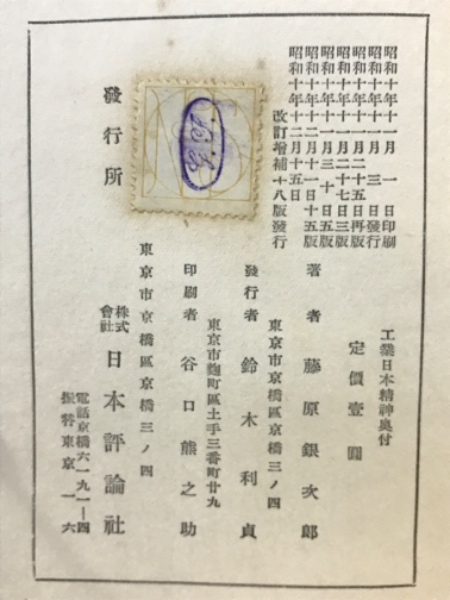 工業日本精神奥付
定價壹圓
昭和十年十一月一日印刷
昭和十年十一月三日發行
昭和十年十一月二十五日再版
昭和十年十一月二十七日三版
昭和十年十一月三十日五版
昭和十年十二月十一日十五版
昭和十年十二月十五日
改訂增補十八版發行
著者 藤原銀次郎
東京市京橋區京橋三ノ四
發行者 鈴木利貞
東京市麴町區土手三番町廿九
印刷者 谷口熊之助
東京市京橋區京橋三ノ四
發行所 株式會社 日本評論社
電話京橋六一九一―四
振替東京一六